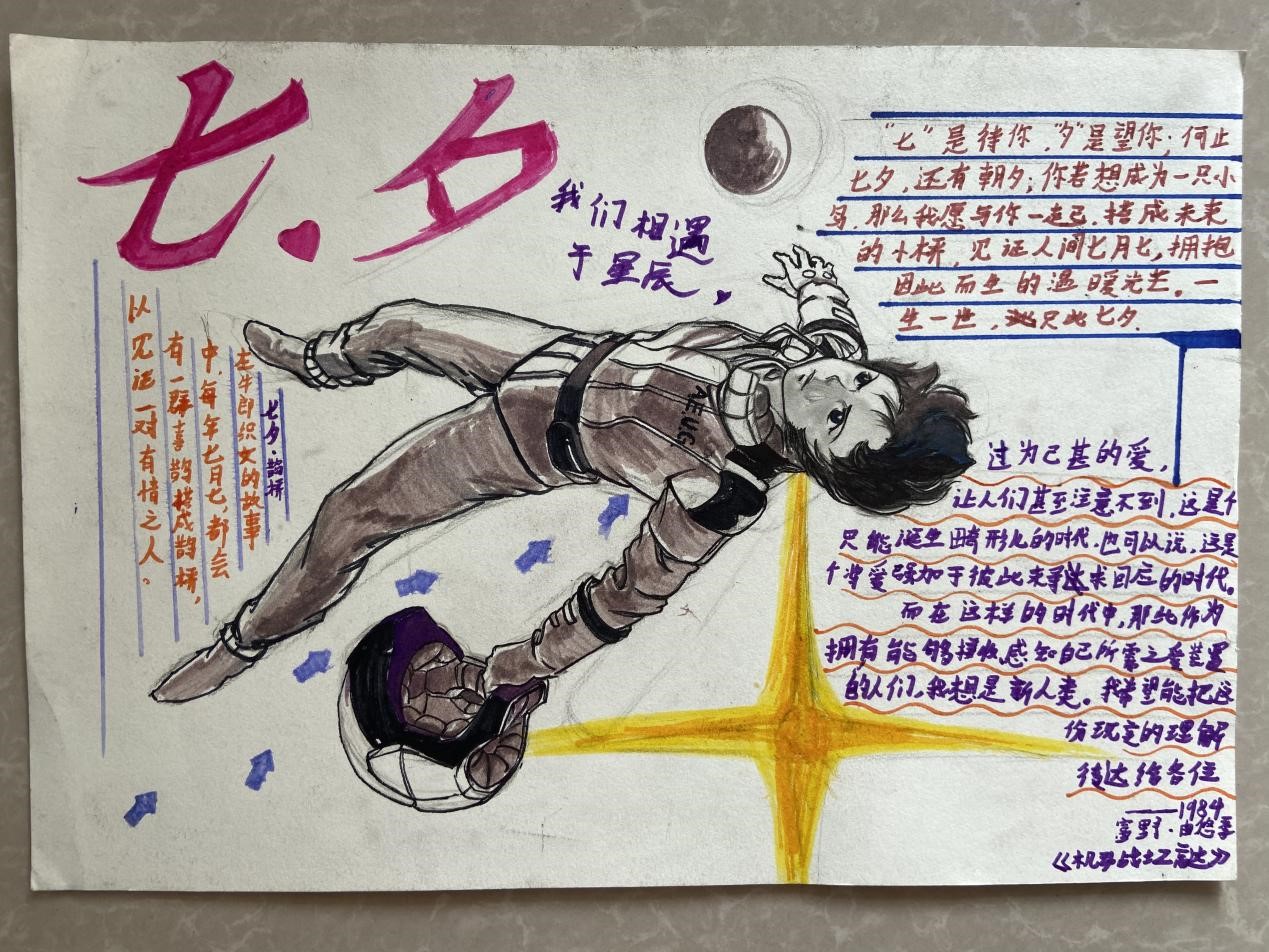 七.夕
我们相遇
于星辰,
"七"是待你,"夕"是望你;何止
七夕,还有朝夕;你若想成为一只小
鸟,那么我愿与你一起,搭成未来
的小桥,见证人间七月七,拥抱
因此而生的温暖光芒。一
生一世,只此七夕.
七夕·鹊桥
在牛郎织女的故事
中,每年七月七,都会
有一群喜鹊搭成鹊桥,
以见证一对有情之人。
AEUG
过为己甚的爱,
让人们甚至注意不到,这是个
只能诞生畸形儿的时代.也可以说,这是
个将爱强加于彼此来寻求回应的时代。
而在这样的时代中,那些作为
拥有能够接收感知自己所需之爱装置
的人们,我想是新人类。我希望能把这
份坚定的理解
传达给各位
——1984
富野·由悠季
《机动战士Z高达》